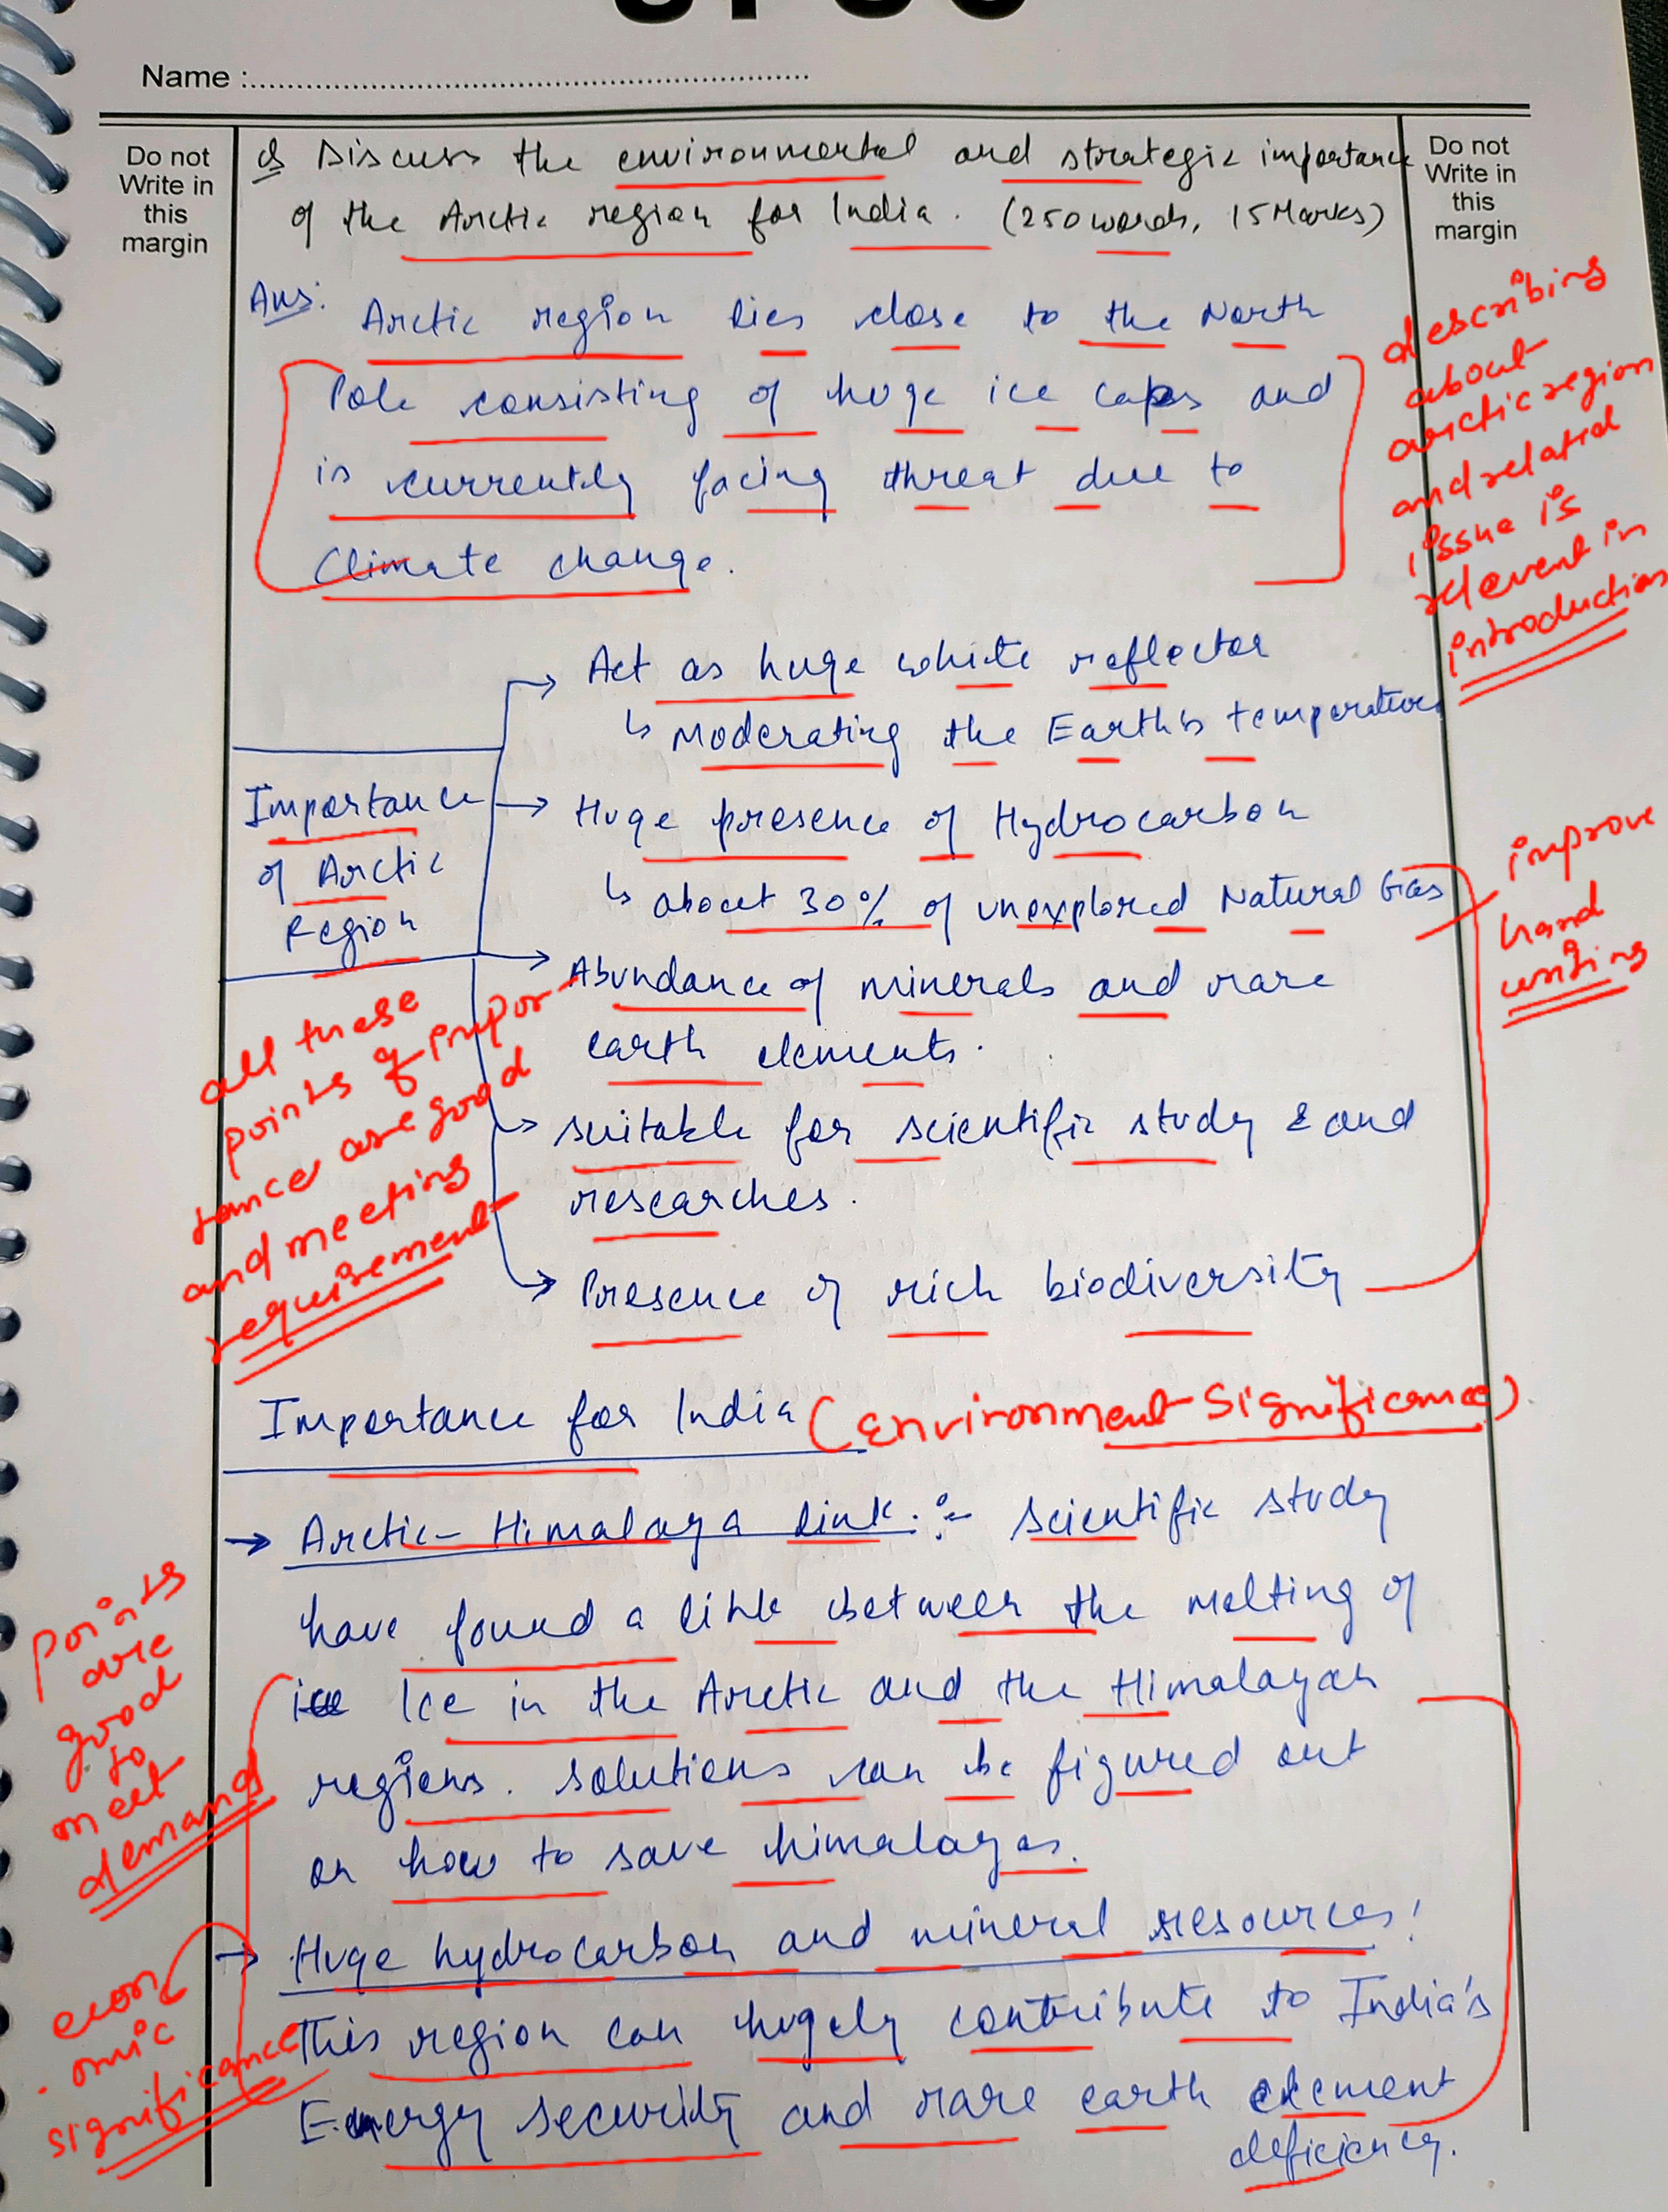 UPSC
Name :
Do not
Write in
this
margin
Do not
Write in
this
margin
Q Discuss the environmental and strategic importance
of the Arctic region for India. (250 words, 15 Marks)
Ans: Arctic region lies close to the North
Pole consisting of huge ice caps and
is currently facing threat due to
Climate change.
describing
about
arctic region
and related
issue is
relevent in
introduction
Importance
of Arctic
Region
→ Act as huge white reflector
↳ Moderating the Earth's temperature
→ Huge presence of Hydrocarbon
↳ about 30% of unexplored Natural Gas
→ Abundance of minerals and rare
earth elements.
→ suitable for scientific study & and
researches.
→ Presence of rich biodiversity
improve
hand
writing
all these
points of impor-
tance are good
and meeting
requirement
Importance for India (Environment Significance)
→ Arctic-Himalaya link :- Scientific study
have found a link between the melting of
ice Ice in the Arctic and the Himalayan
regions. Solutions can be figured out
on how to save himalayas.
points
are
good
to
meet
demand
→ Huge hydrocarbon and mineral resources:
This region can hugely contribute to India's
Energy security and rare earth element
deficiency.
econ
omic
significance